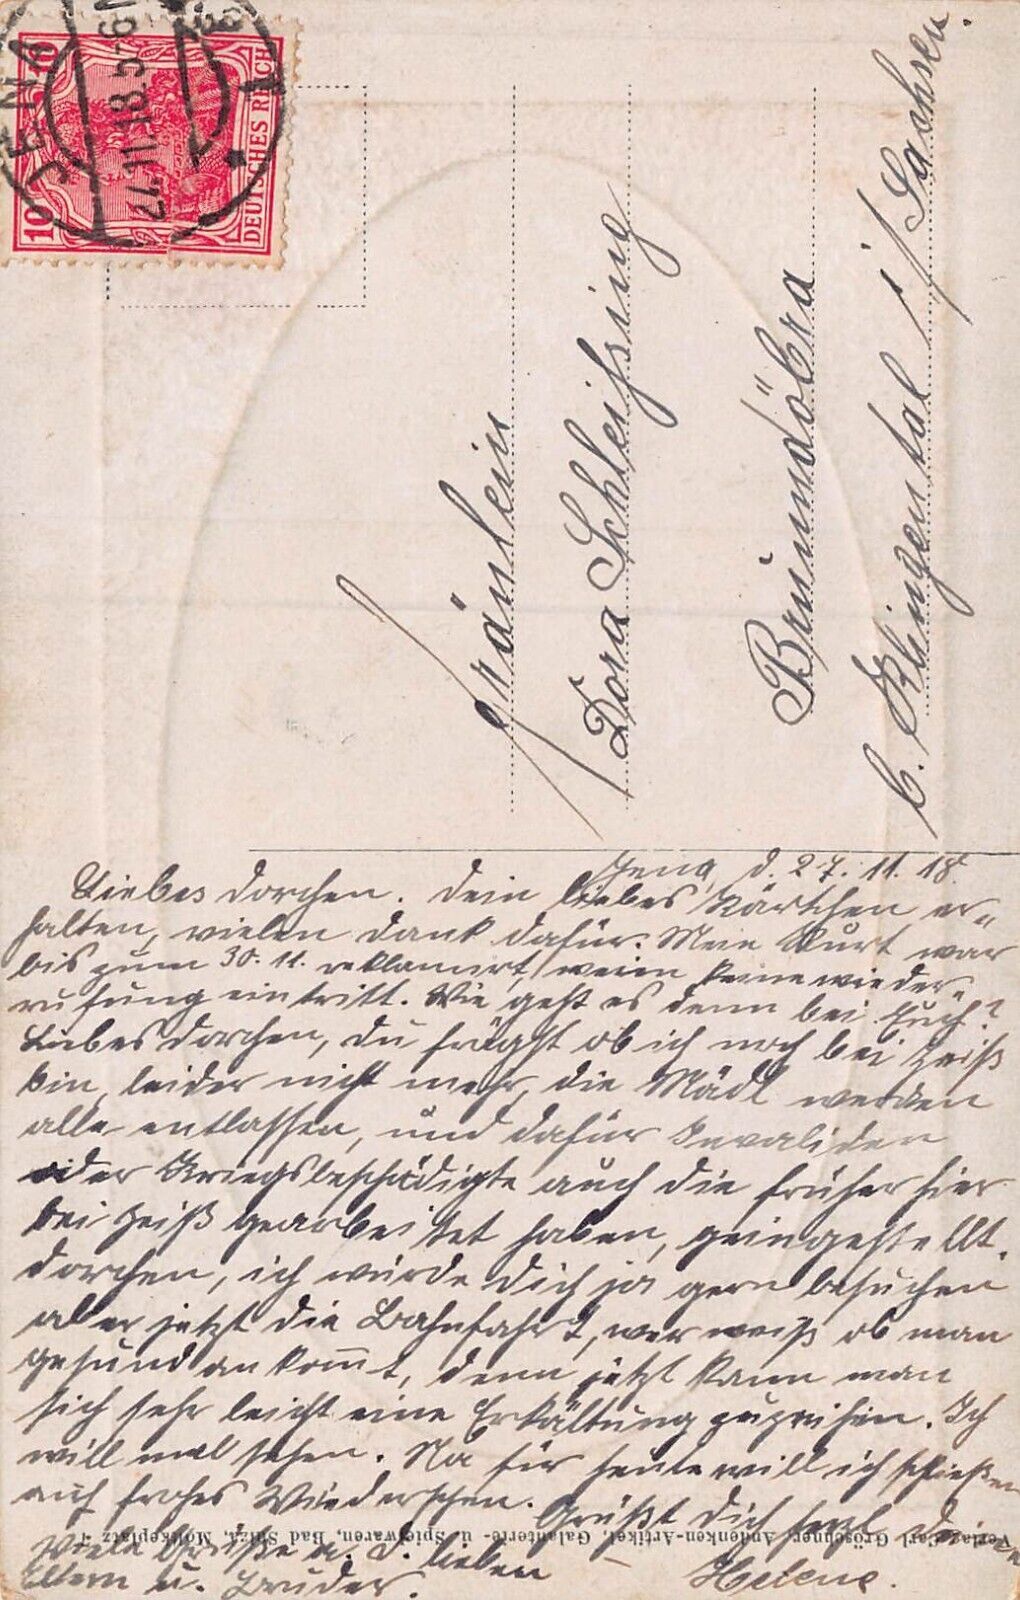 JENA
27.11.18.5-6N
10 10
DEUTSCHES REICH
Fräulein
Dora Schleissing
Brunndöbra
b. Klingental i/Sachsen.
Jena, d. 27.11.18.
Liebes Dorchen. Dein liebes Kärtchen er-
halten, vielen Dank dafür. Mein Kurt war
bis zum 30.11. reklamiert, wenn keine wieder-
rufung eintritt. Wie geht es denn bei Euch?
Liebes Dorchen, du frägst ob ich noch bei Zeiß
bin, leider nicht mehr, die Mädl werden
alle entlassen, und dafür Invaliden
oder Kriegsbeschädigte auch die früher hier
bei Zeiß gearbeitet haben, eingestellt.
Dorchen, ich würde Dich ja gern besuchen
aber jetzt die Bahnfahrt, wer weiß ob man
gesund ankommt, denn jetzt kann man
sich sehr leicht eine Erkältung zuziehen. Ich
will mal sehen. Na für heute will ich schließen
auf frohes Wiedersehen. Grüßt Dich herzl. Deine
Viele Grüße a. d. lieben Helene.
Eltern u. Bruder.
Verlag Carl Gröschner, Andenken-Artikel, Galanterie- u. Spielwaren, Bad Sulza, Moltkeplatz